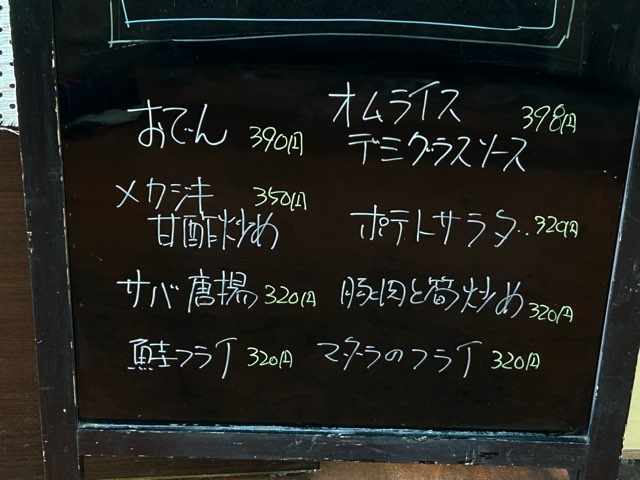 おでん 390円
オムライス 398円
デミグラスソース
メカジキ 350円
甘酢炒め
ポテトサラダ 320円
サバ唐揚 320円
豚肉と筍炒め 320円
鮭フライ 320円
マダラのフライ 320円